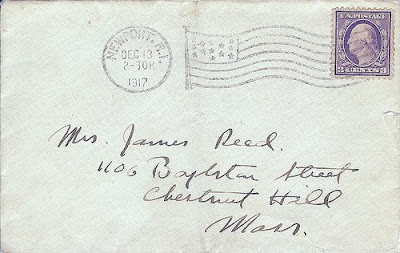 NEWPORT, R.I.
DEC 13
2-30P
1917
U.S. POSTAGE
3 3
Mrs. James Reed.
1106 Boylston Street
Chestnut Hill
Mass.